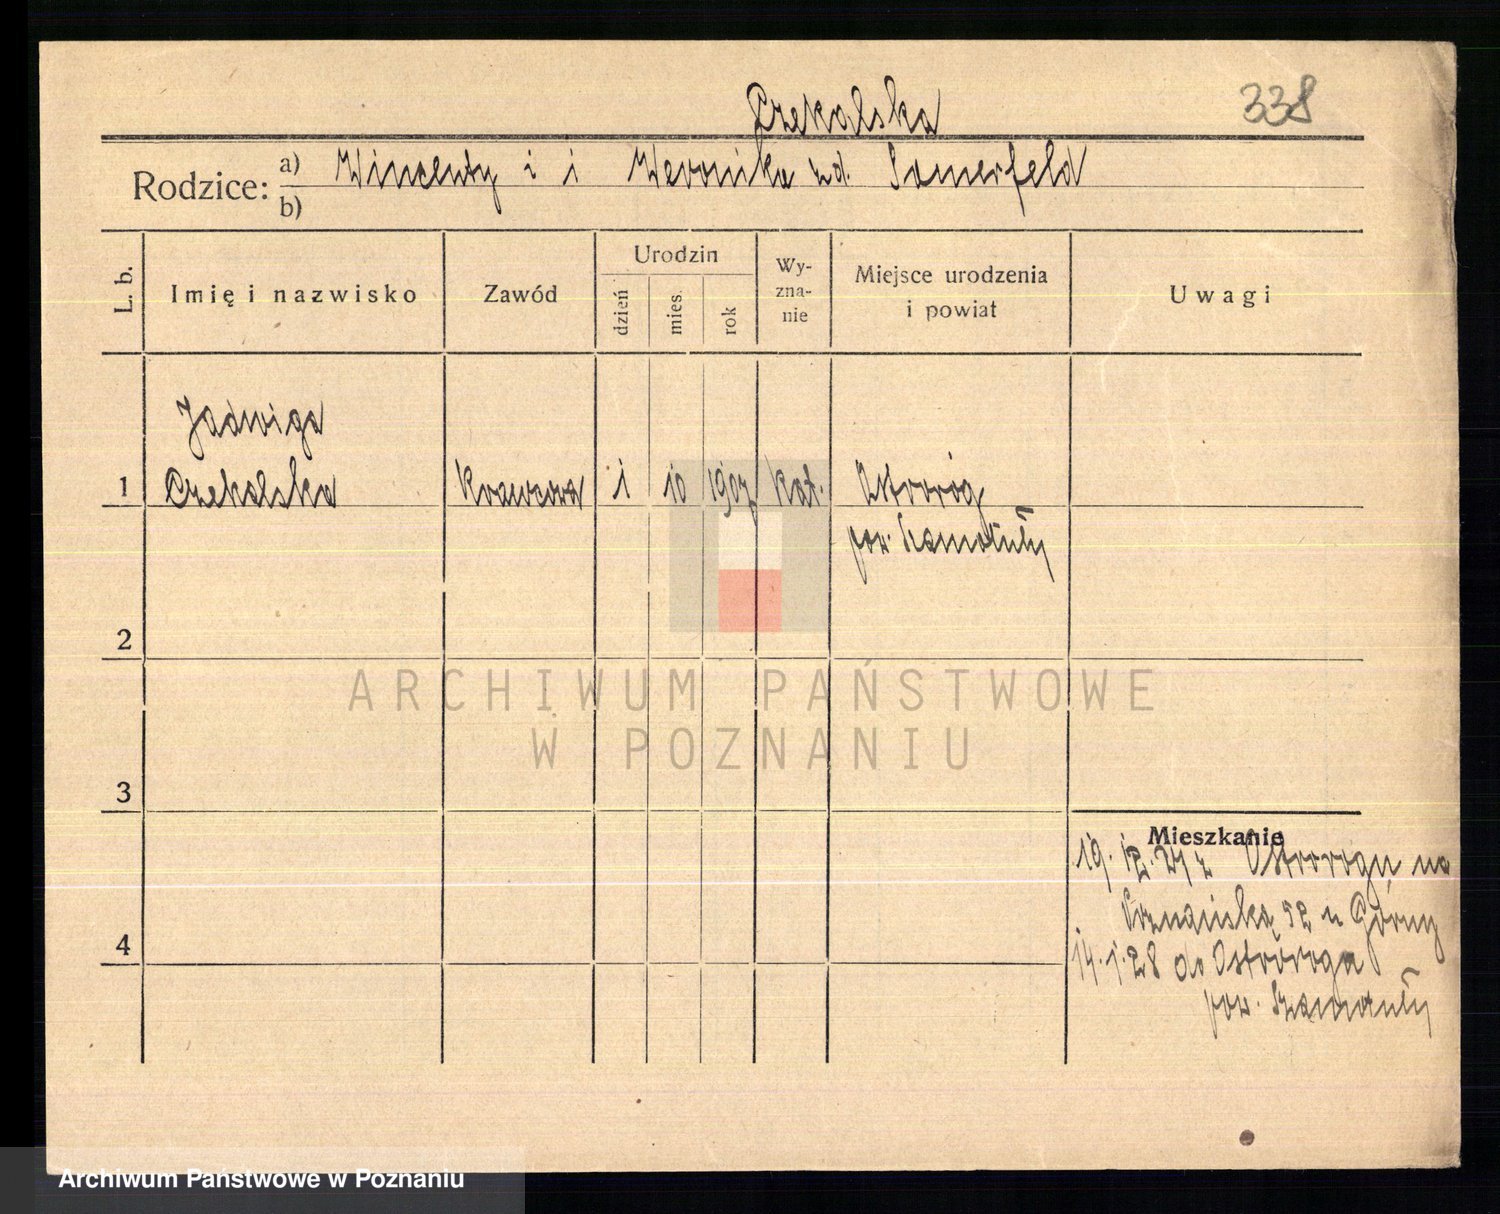 Czekalska
338
Rodzice:
a) Wincenty i i Weronika zd. Somerfeld
b)
L. b.
Imię i nazwisko
Zawód
Urodzin
dzień
mies.
rok
Wy-
zna-
nie
Miejsce urodzenia
i powiat
Uwagi
Jadwiga
1 Czekalska Krawcowa 1 10 1907 kat. Ostroróg
pow. Szamotuły
2
3
4
Mieszkanie
19. 12. 27 z Ostroroga na
Poznańską 52 u Górny
14.1.28 do Ostroroga
pow. Szamotuły
ARCHIWUM PAŃSTWOWE
W POZNANIU
Archiwum Państwowe w Poznaniu